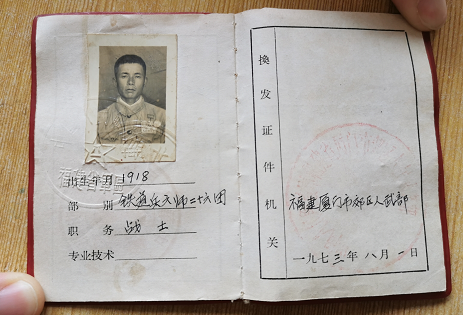 出生年月 1918
部 别 铁道兵六师二十六团
职 务 战士
专业技术
換发证件机关
福建厦门市郊区人武部
一九七三年八月一日